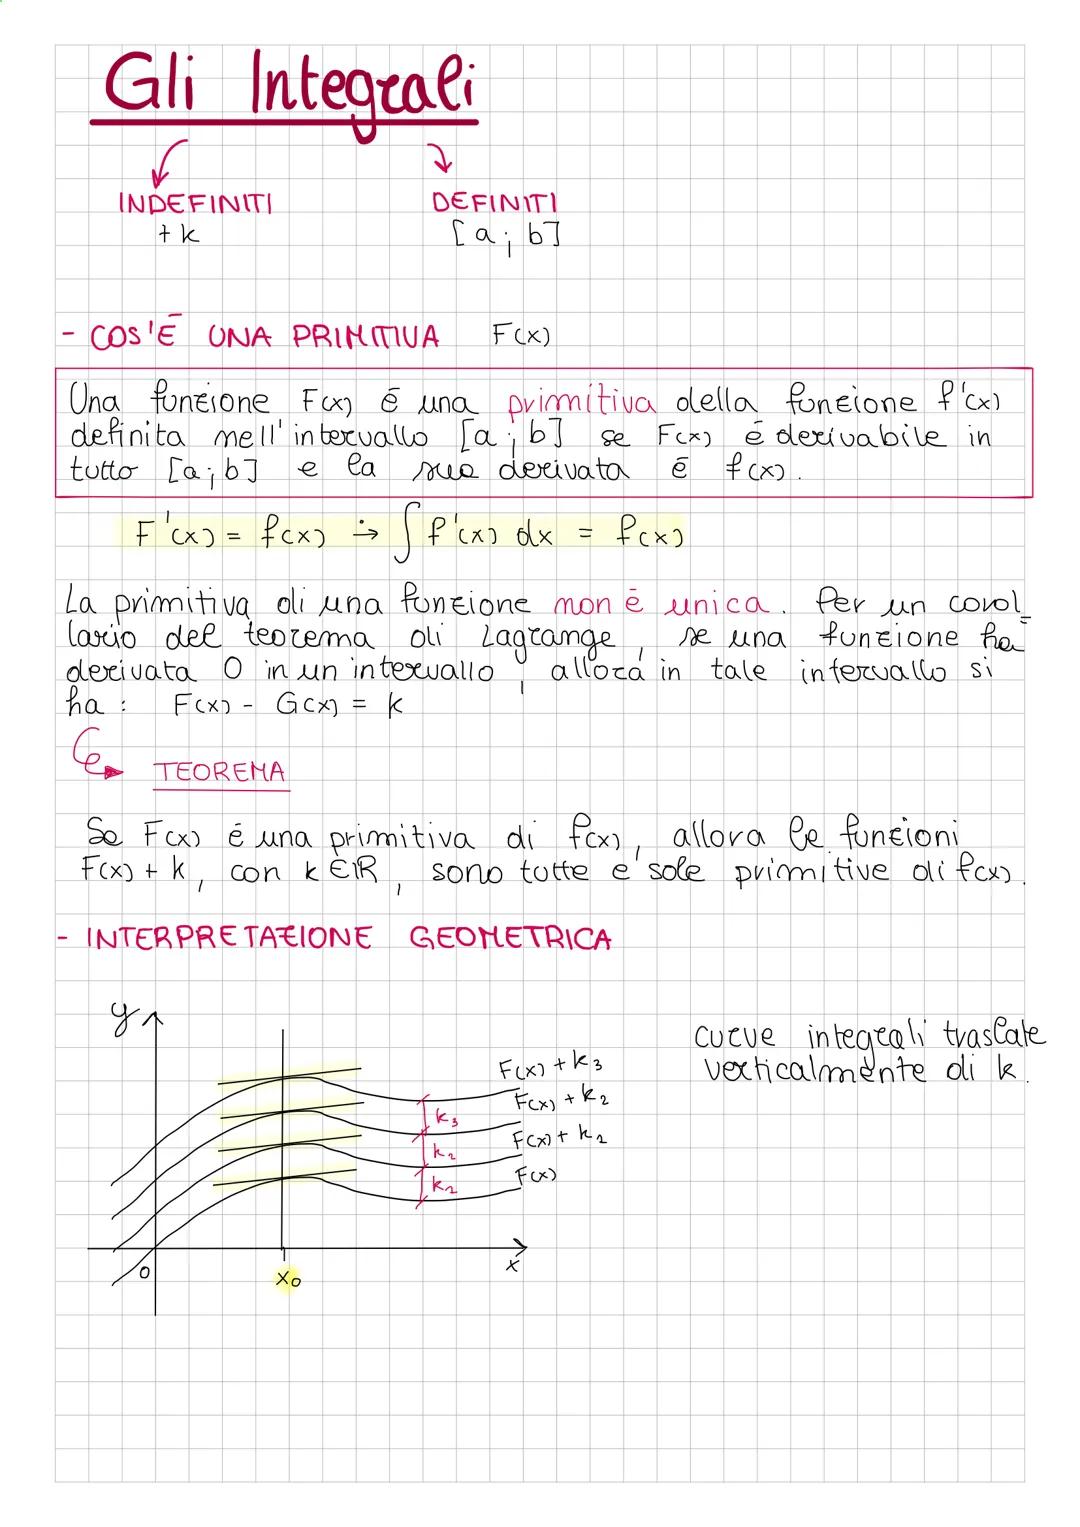 Gli Integrali
INDEFINITI DEFINITI
+ k [a ; b]
- COS'È UNA PRIMITIVA F(x)
Una funzione F(x) è una primitiva della funzione f'(x)
definita nell'intervallo [a ; b] se F(x) è derivabile in
tutto [a ; b] e la sua derivata è f(x).
F'(x) = f(x) ∴→ ∫ f'(x) dx = f(x)
La primitiva di una funzione non è unica. Per un corol_
lario del teorema di Lagrange, se una funzione ha
derivata 0 in un intervallo, allora in tale intervallo si
ha : F(x) - G(x) = k
TEOREMA
Se F(x) è una primitiva di f(x), allora le funzioni
F(x) + k, con k ∈ ℝ, sono tutte e sole primitive di f(x).
- INTERPRETAZIONE GEOMETRICA
y
curve integrali traslate
verticalmente di k.
F(x) + k3
F(x) + k2
k3
F(x) + k2
k2
F(x)
k2
0
x0
x